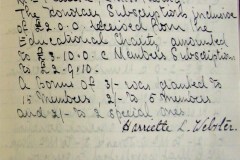 The Lonsdale Subscriptions inclusive
of £2.0.0 received from the
Educational Charity amounted
to £3.10.0 & Members Subscriptions
to £2.9.10.
A bonus of 3/- was granted to
15 Members, 2/- to 5 Members
and 2/- to 2 special ones.
Harriette L. Webster.